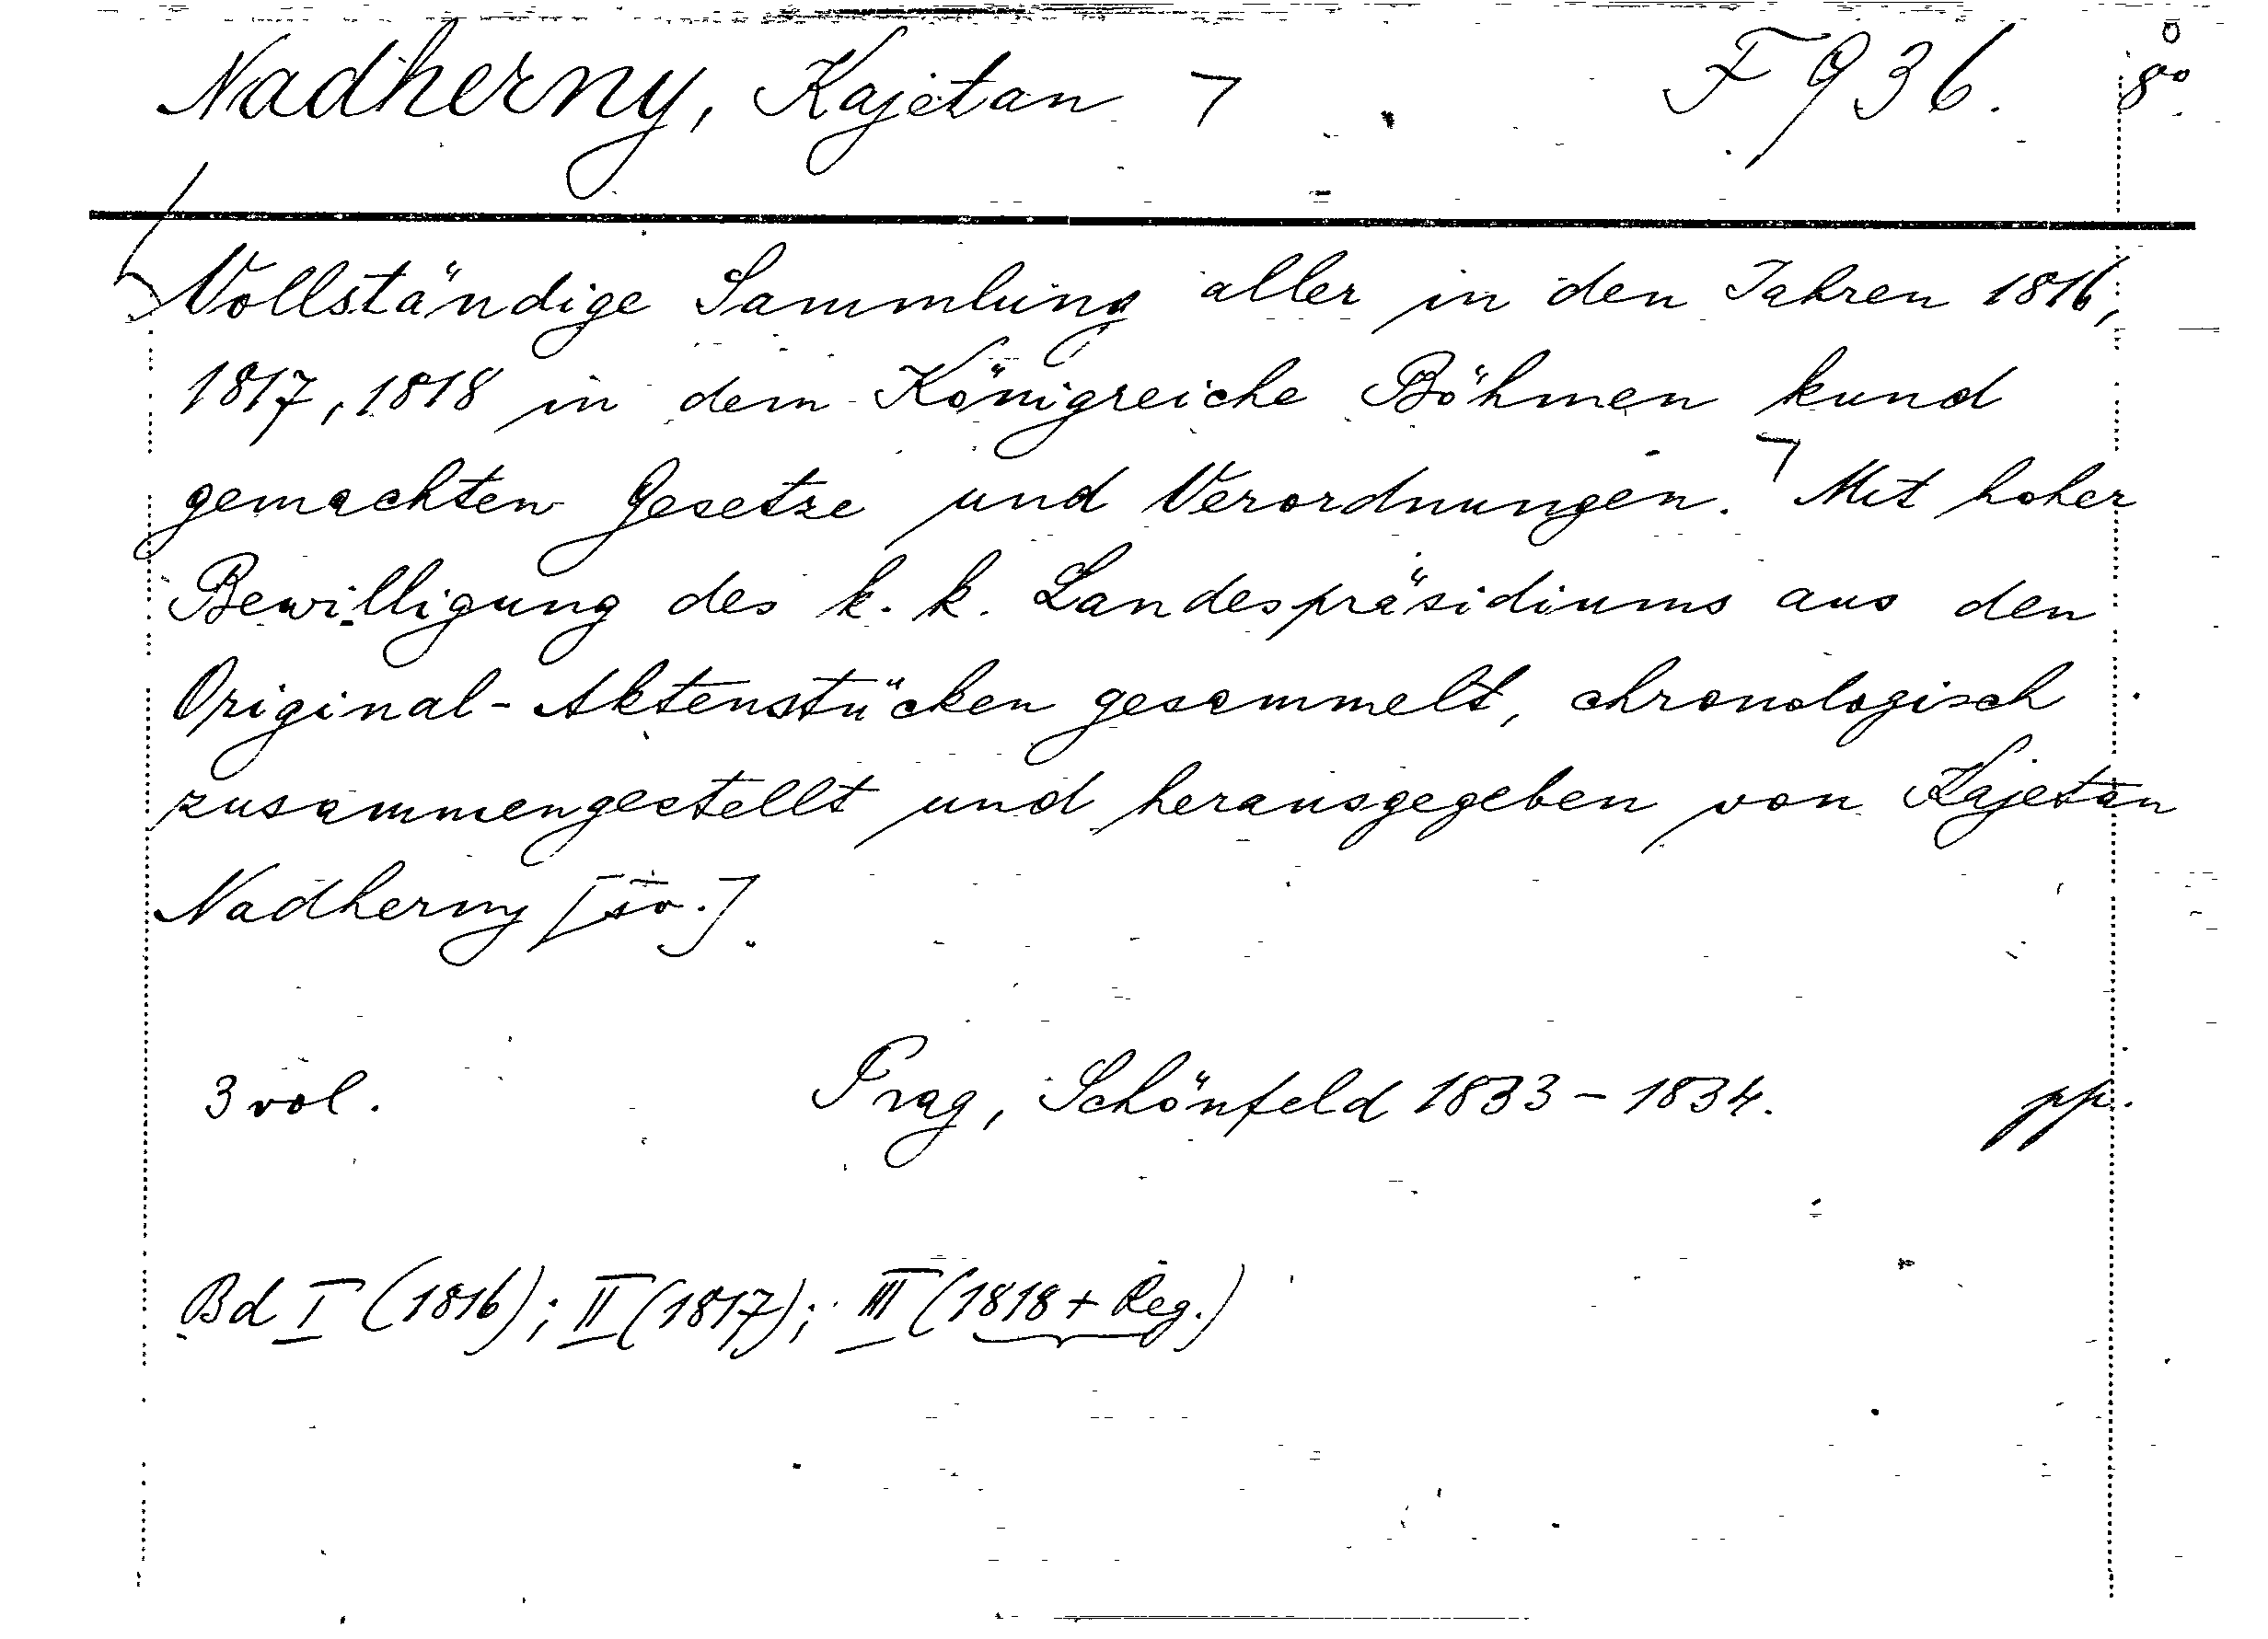 Nadherny, Kajetan ¬ F 936. 8°
Vollständige Sammlung aller in den Jahren 1816,
1817, 1818 in dem Königreiche Böhmen kund
gemachten Gesetze und Verordnungen. ¬ Mit hoher
Bewilligung des k. k. Landespräsidiums aus den
Original-Aktenstücken gesammelt, chronologisch
zusammengestellt und herausgegeben von Kajetan
Nadherny
3 vol. Prag, Schönfeld 1833 - 1834. pp.
Bd I (1816); II (1817); III (1818 + Reg.)